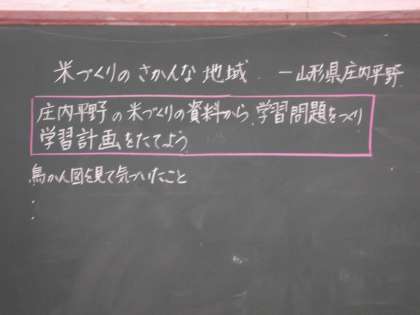 米づくりのさかんな地域 ー山形県庄内平野
庄内平野の米づくりの資料から、学習問題をつくり
学習計画をたてよう
鳥かん図を見て気づいたこと
・
・